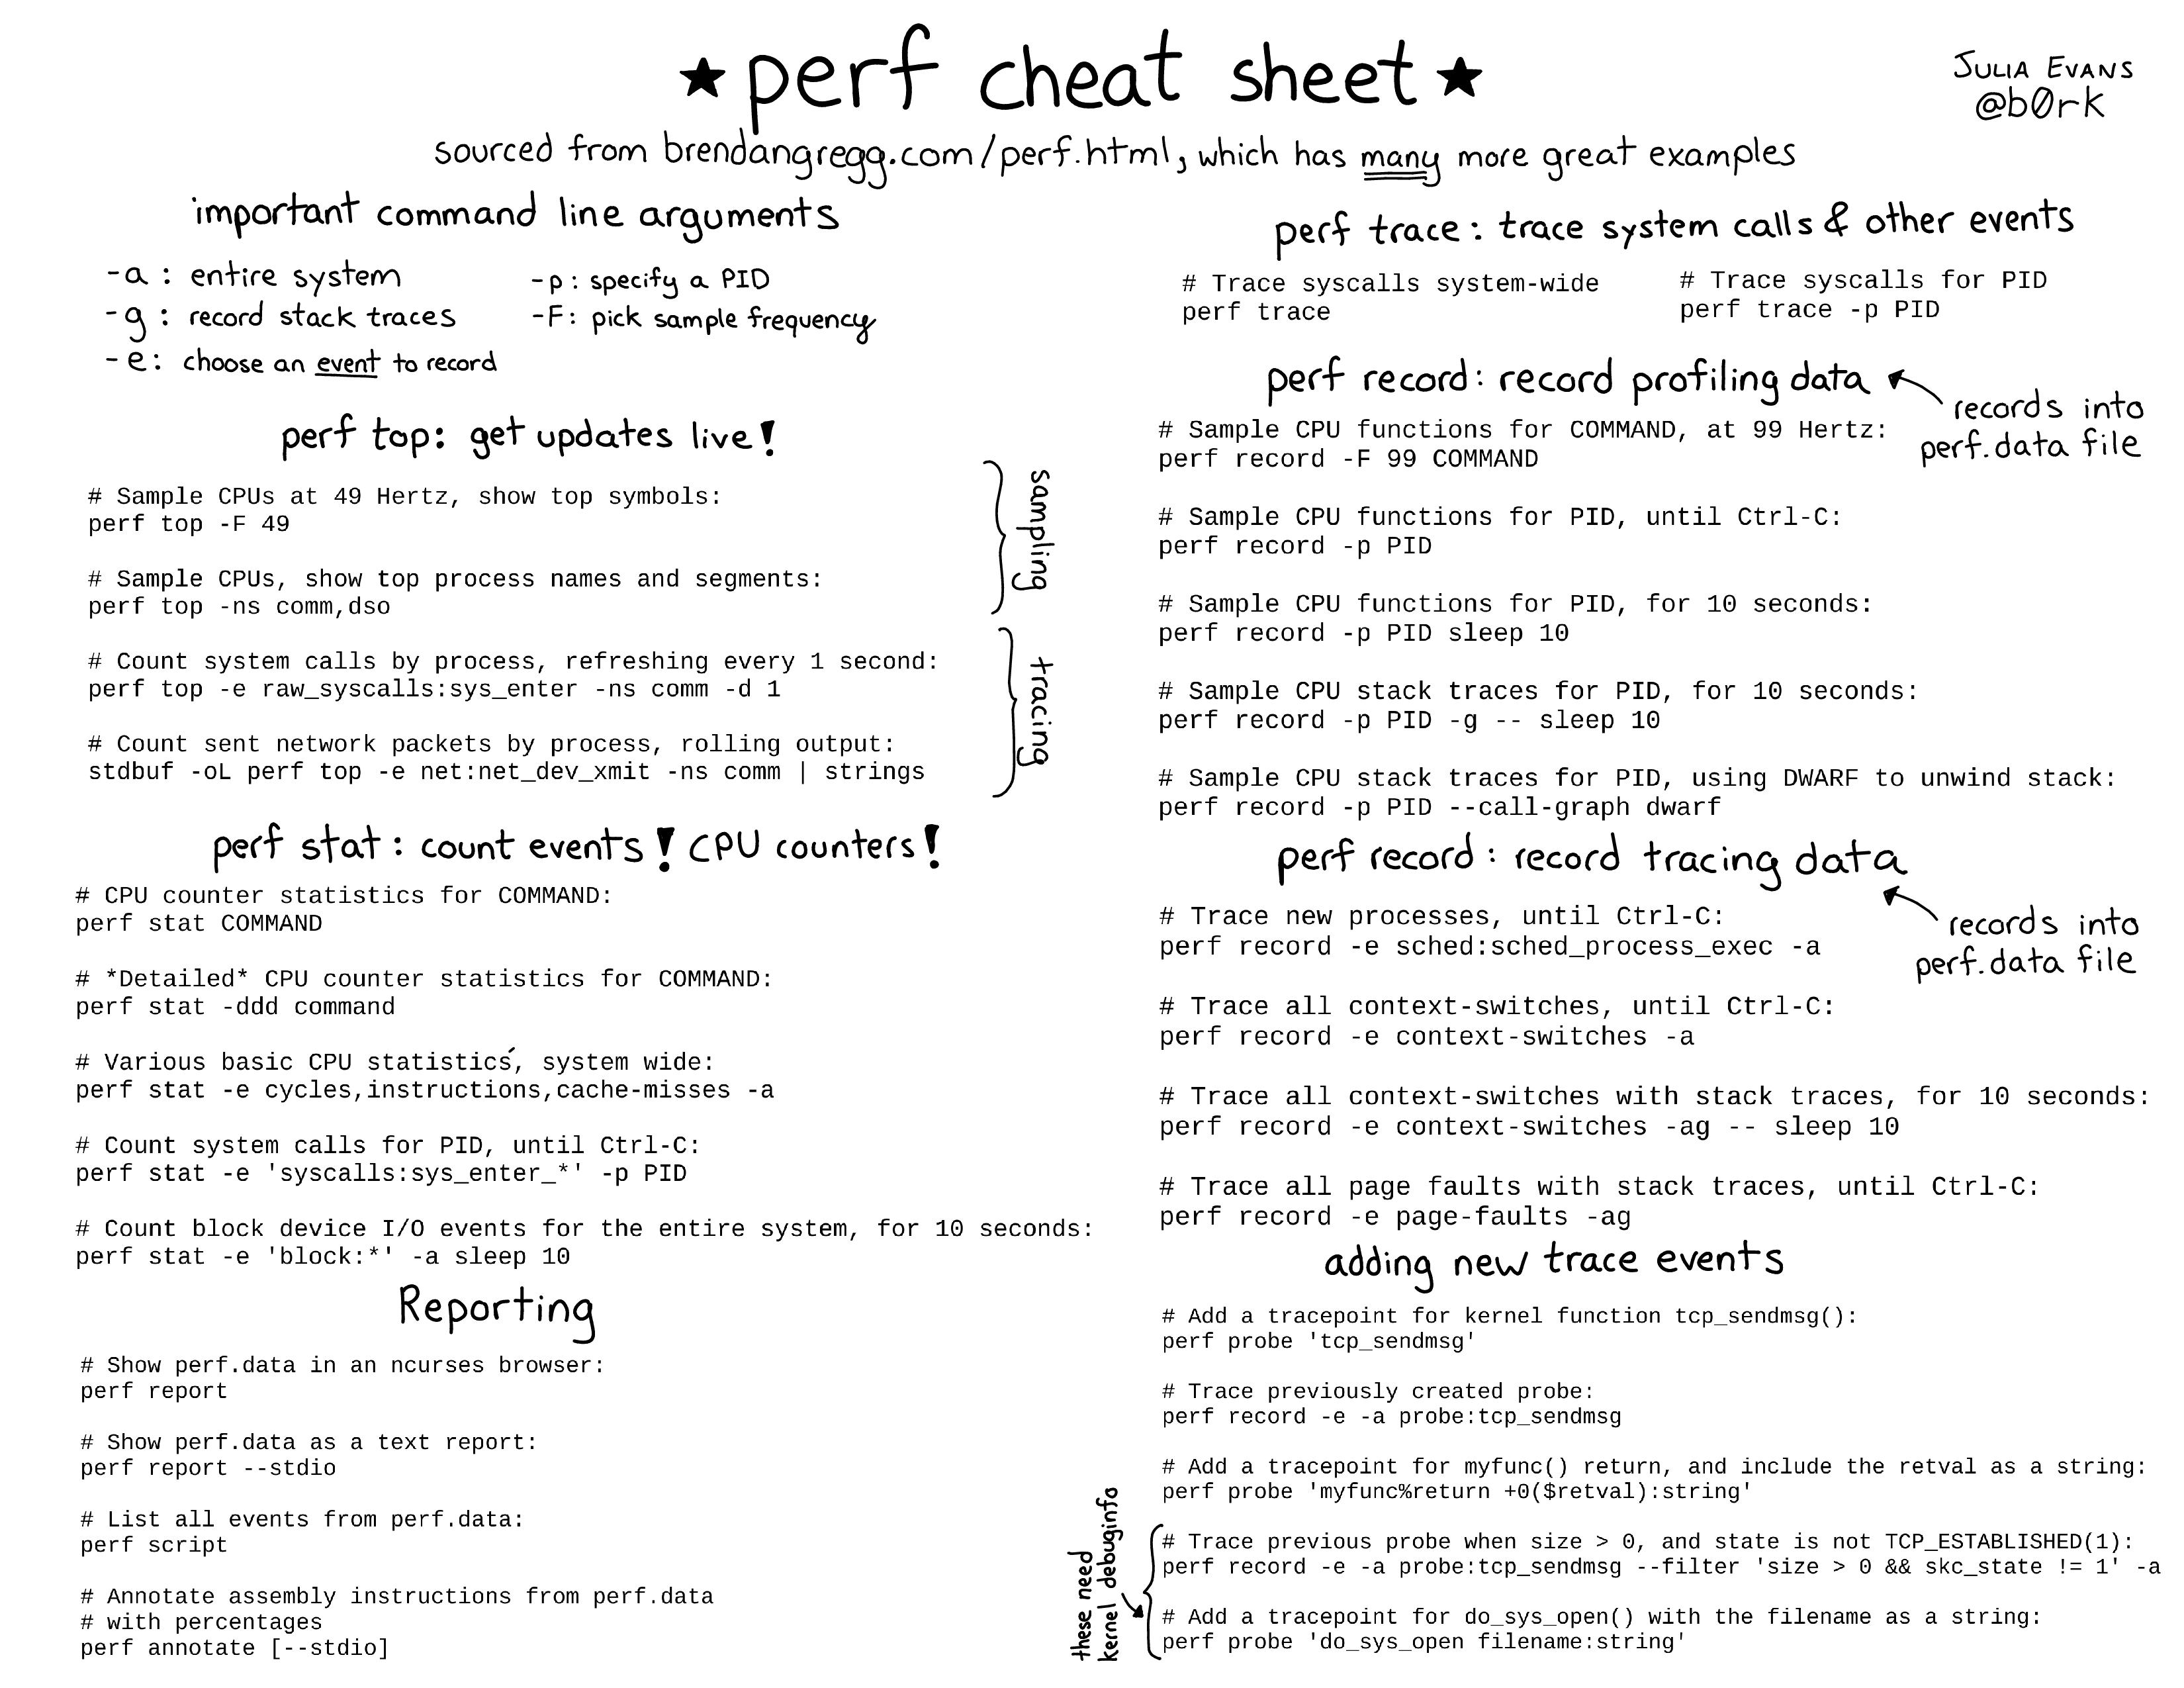 ★ perf cheat sheet ★
JULIA EVANS
@b0rk
sourced from brendangregg.com/perf.html, which has many more great examples
important command line arguments
-a : entire system
-g : record stack traces
-e: choose an event to record
-p: specify a PID
-F: pick sample frequency
perf top: get updates live!
# Sample CPUs at 49 Hertz, show top symbols:
perf top -F 49
# Sample CPUs, show top process names and segments:
perf top -ns comm,dso
sampling
# Count system calls by process, refreshing every 1 second:
perf top -e raw_syscalls:sys_enter -ns comm -d 1
# Count sent network packets by process, rolling output:
stdbuf -oL perf top -e net:net_dev_xmit -ns comm | strings
tracing
perf stat: count events! CPU counters!
# CPU counter statistics for COMMAND:
perf stat COMMAND
# *Detailed* CPU counter statistics for COMMAND:
perf stat -ddd command
# Various basic CPU statistics, system wide:
perf stat -e cycles,instructions,cache-misses -a
# Count system calls for PID, until Ctrl-C:
perf stat -e 'syscalls:sys_enter_*' -p PID
# Count block device I/O events for the entire system, for 10 seconds:
perf stat -e 'block:*' -a sleep 10
Reporting
# Show perf.data in an ncurses browser:
perf report
# Show perf.data as a text report:
perf report --stdio
# List all events from perf.data:
perf script
# Annotate assembly instructions from perf.data
# with percentages
perf annotate [--stdio]
perf trace: trace system calls & other events
# Trace syscalls system-wide
perf trace
# Trace syscalls for PID
perf trace -p PID
perf record: record profiling data
records into
perf.data file
# Sample CPU functions for COMMAND, at 99 Hertz:
perf record -F 99 COMMAND
# Sample CPU functions for PID, until Ctrl-C:
perf record -p PID
# Sample CPU functions for PID, for 10 seconds:
perf record -p PID sleep 10
# Sample CPU stack traces for PID, for 10 seconds:
perf record -p PID -g -- sleep 10
# Sample CPU stack traces for PID, using DWARF to unwind stack:
perf record -p PID --call-graph dwarf
perf record: record tracing data
records into
perf.data file
# Trace new processes, until Ctrl-C:
perf record -e sched:sched_process_exec -a
# Trace all context-switches, until Ctrl-C:
perf record -e context-switches -a
# Trace all context-switches with stack traces, for 10 seconds:
perf record -e context-switches -ag -- sleep 10
# Trace all page faults with stack traces, until Ctrl-C:
perf record -e page-faults -ag
adding new trace events
# Add a tracepoint for kernel function tcp_sendmsg():
perf probe 'tcp_sendmsg'
# Trace previously created probe:
perf record -e -a probe:tcp_sendmsg
# Add a tracepoint for myfunc() return, and include the retval as a string:
perf probe 'myfunc%return +0($retval):string'
these need
kernel debuginfo
# Trace previous probe when size > 0, and state is not TCP_ESTABLISHED(1):
perf record -e -a probe:tcp_sendmsg --filter 'size > 0 && skc_state != 1' -a
# Add a tracepoint for do_sys_open() with the filename as a string:
perf probe 'do_sys_open filename:string'